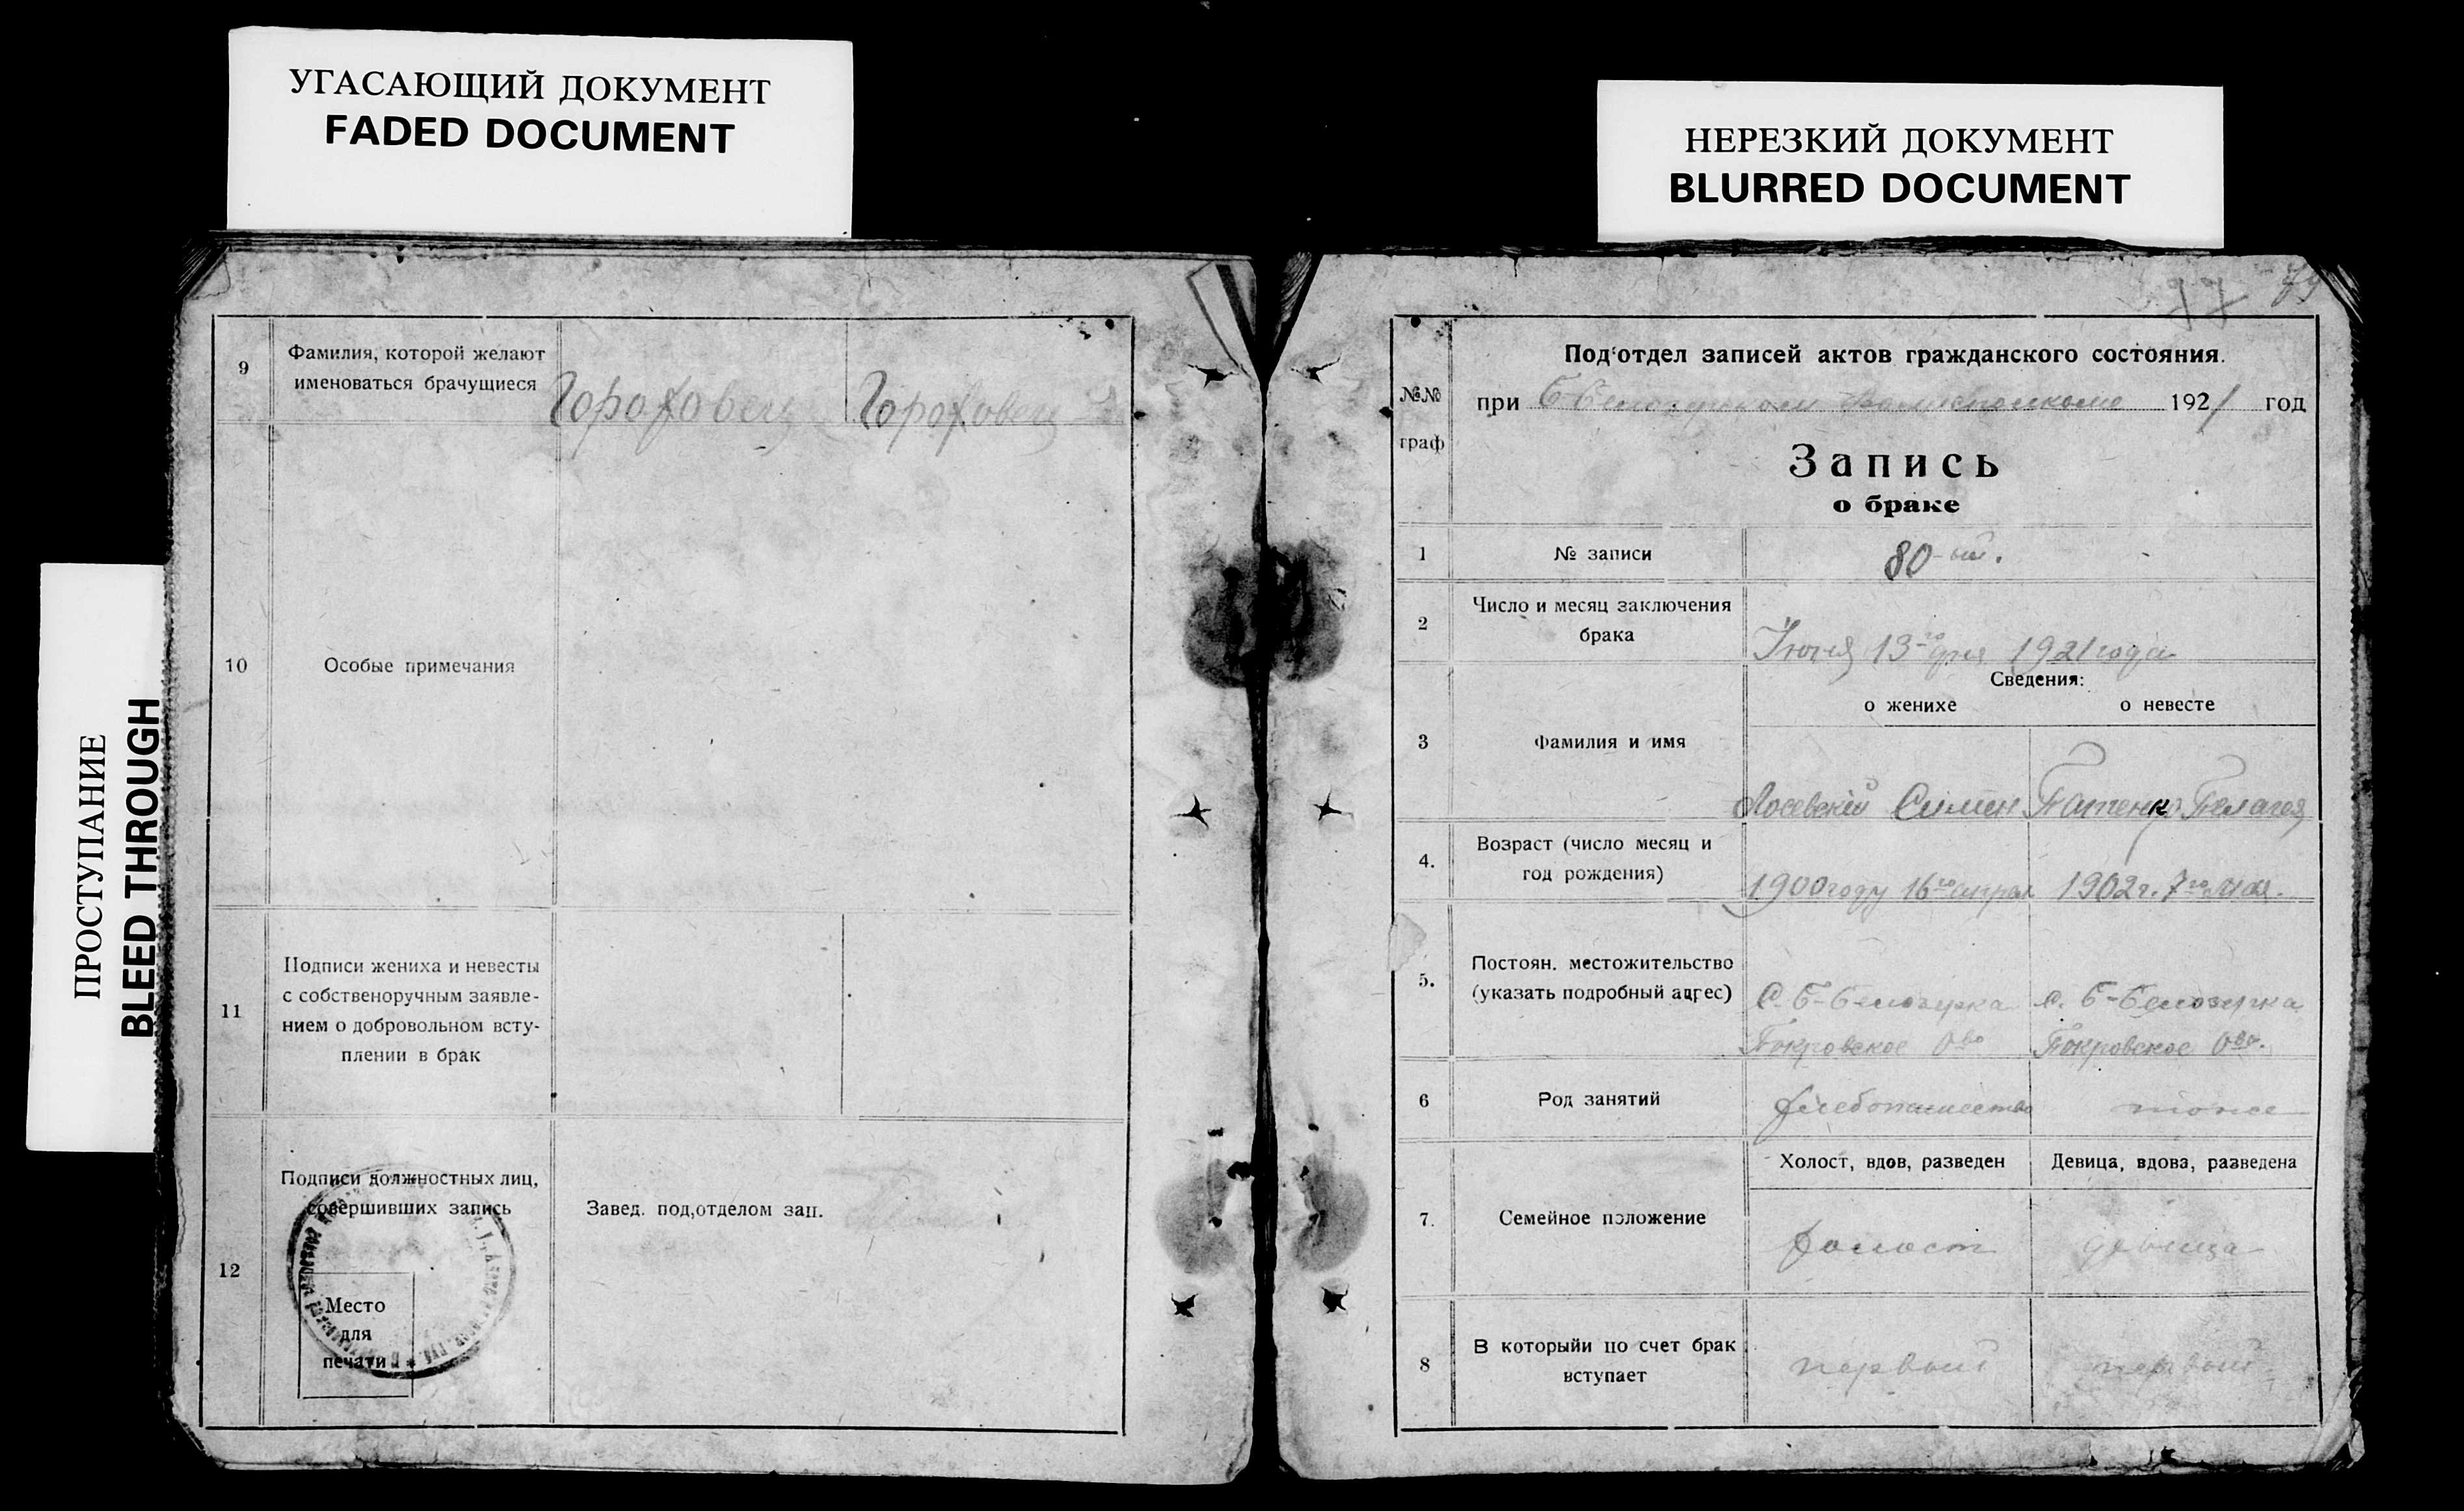 УГАСАЮЩИЙ ДОКУМЕНТ
FADED DOCUMENT
НЕРЕЗКИЙ ДОКУМЕНТ
BLURRED DOCUMENT
ПРОСТУПАНИЕ
BLEED THROUGH
9
Фамилия, которой желают
именоваться брачущиеся
Гороховец Гороховец
10
Особые примечания
11
Подписи жениха и невесты
с собственоручным заявле-
нием о добровольном всту-
плении в брак
12
Подписи должностных лиц,
совершивших запись
Завед. под,отделом зап.
Место
для
печати
77
№№
граф
Под'отдел записей актов гражданского состояния.
при Б Белозерском Волисполкоме 1921 год
Запись
о браке
1
№ записи
80-ый.
2
Число и месяц заключения
брака
Июня 13-го дня 1921 года
Сведения:
о женихе о невесте
3
Фамилия и имя
Лосевский Симен Патенко Пелагея
4.
Возраст (число месяц и
год рождения)
1900 году 16го апреля 1902 г. 7го мая.
5.
Постоян. местожительство
(указать подробный адрес)
С. Б-Белозерка с. Б-Белозерка
Покровское О-во Покровское О-во.
6
Род занятий
хлебопашество тоже
7.
Семейное положение
Холост, вдов, разведен Девица, вдова, разведена
холост девица
8
В которыйи по счет брак
вступает
первый первый